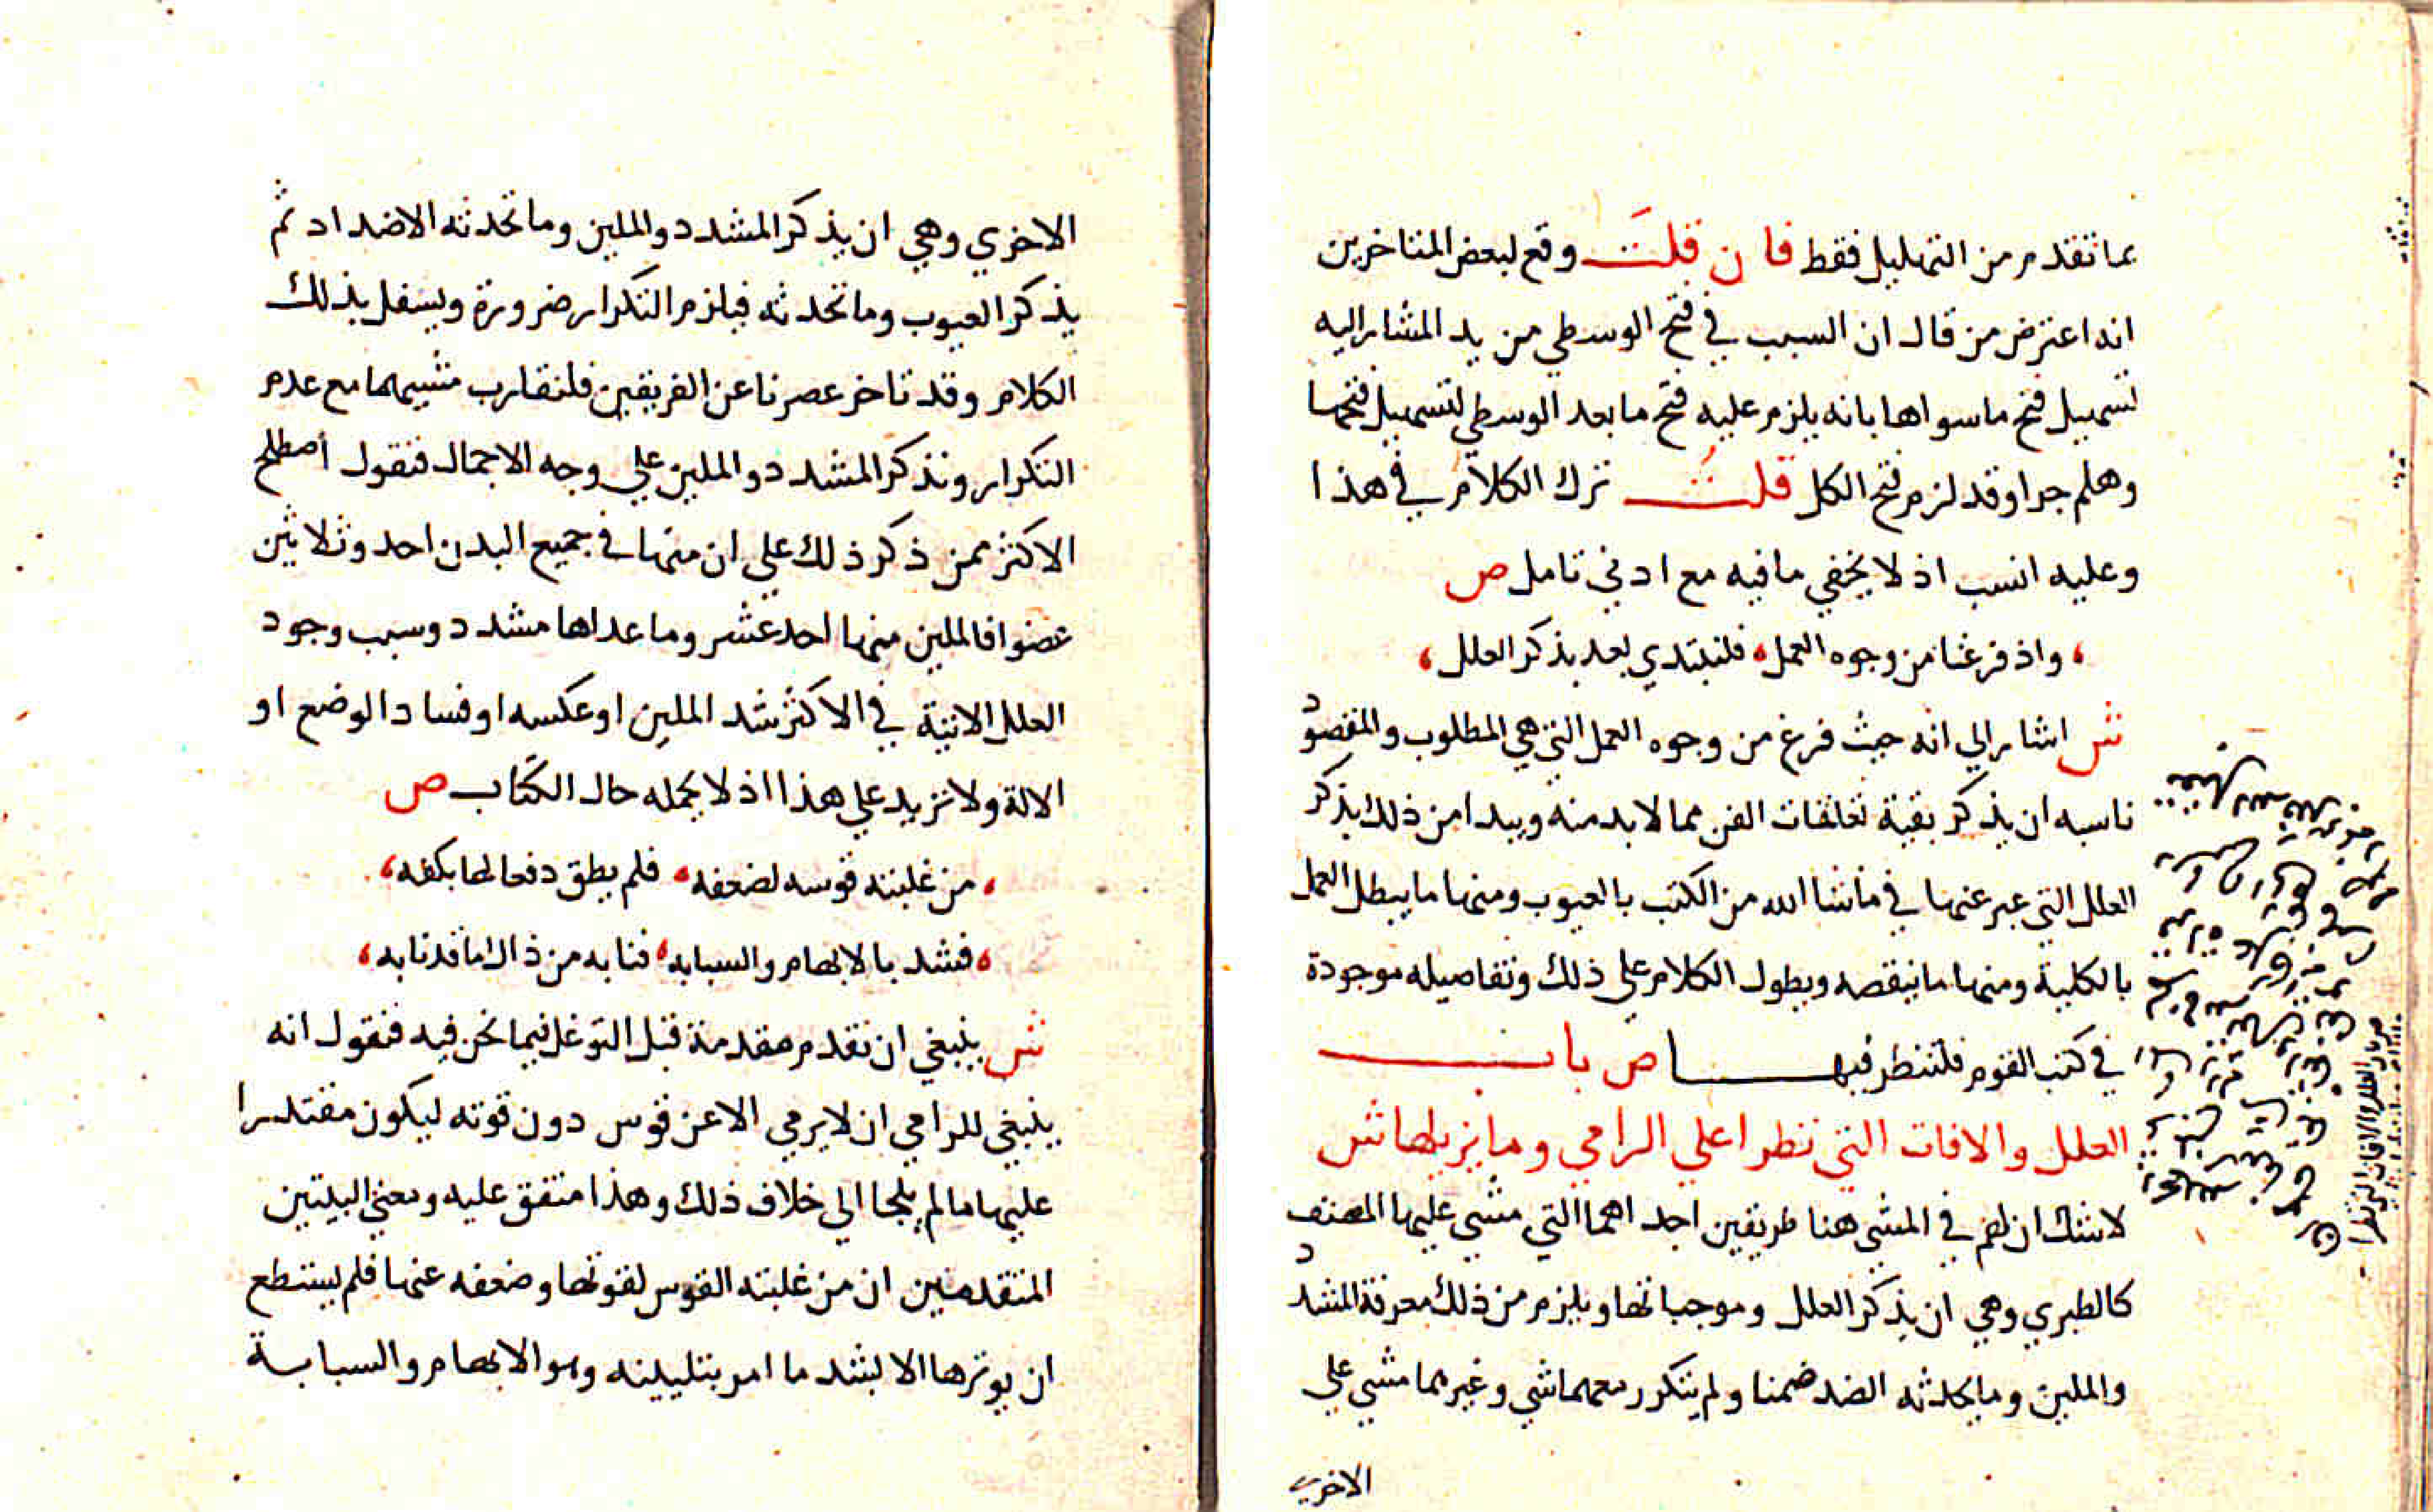 عما تقدم من التهليل فقط فان قلت وقع لبعض المتاخرين
انه اعترض من قال ان السبب في فتح الوسطي من يد المشار اليه
تسهيل فتح ما سواها بانه يلزم عليه فتح ما بعد الوسطي لتسهيل فتحها
وهلم جرا وقد لزم فتح الكل قلت ترك الكلام في هذا
وعليه انسب اذ لا يخفي ما فيه مع ادني تامل ص
، واذ فرغنا من وجوه العمل ، فلنبتدي بعد بذكر العلل ،
ش اشار الي انه حيث فرغ من وجوه العمل التي هي المطلوب والمقصود
ناسبه ان يذكر بقية تعلقات الفن مما لا بد منه وبدا من ذلك بذكر
العلل التي عبر عنها في ما شا الله من الكتب بالعيوب ومنها ما يبطل العمل
بالكلية ومنها ما ينقصه ويطول الكلام علي ذلك وتفاصيله موجودة
في كتب القوم فلتنظر فيها ص باب
العلل والافات التي تطرا علي الرامي وما يزيلها ش
لا شك ان لهم في المشي هنا طريقين احداهما التي مشي عليها المصنف
كالطبري وهي ان يذكر العلل وموجباتها ويلزم من ذلك معرفة المشدد
والملين وما يحدثه الضد ضمنا ولم يتكرر معهما شي وغيرهما مشي علي
الاخري
الاخري وهي ان يذكر المشدد والملين وما تحدثه الاضداد ثم
يذكر العيوب وما تحدثه فيلزم التكرار ضرورة ويسفل بذلك
الكلام وقد تاخر عصرنا عن الفريقين فلنقارب مشيهما مع عدم
التكرار ونذكر المشدد والملين علي وجه الاجمال فنقول اصطلح
الاكثر ممن ذكر ذلك علي ان منها في جميع البدن احد وثلاثين
عضوا فالملين منها احد عشر وما عداها مشدد وسبب وجود
العلل الاتية في الاكثر شد الملين او عكسه او فساد الوضع او
الالة ولا نزيد علي هذا اذ لا يحمله حال الكتاب ص
، من غلبته قوسه لضعفه ، فلم يطق دفعا لها بكفه ،
، فشد بالابهام والسبابه ، فنابه من ذاك ما قد نابه ،
ش ينبغي ان نقدم مقدمة قبل التوغل فيما نحن فيه فنقول انه
ينبغي للرامي ان لا يرمي الا عن قوس دون قوته ليكون مقتدرا
عليها ما لم يلجا الي خلاف ذلك وهذا متفق عليه ومعني البيتين
المتقدمين ان من غلبته القوس لقوتها وضعفه عنها فلم يستطع
ان يوترها الا بشد ما امر بتليينه وهو الابهام والسبابة